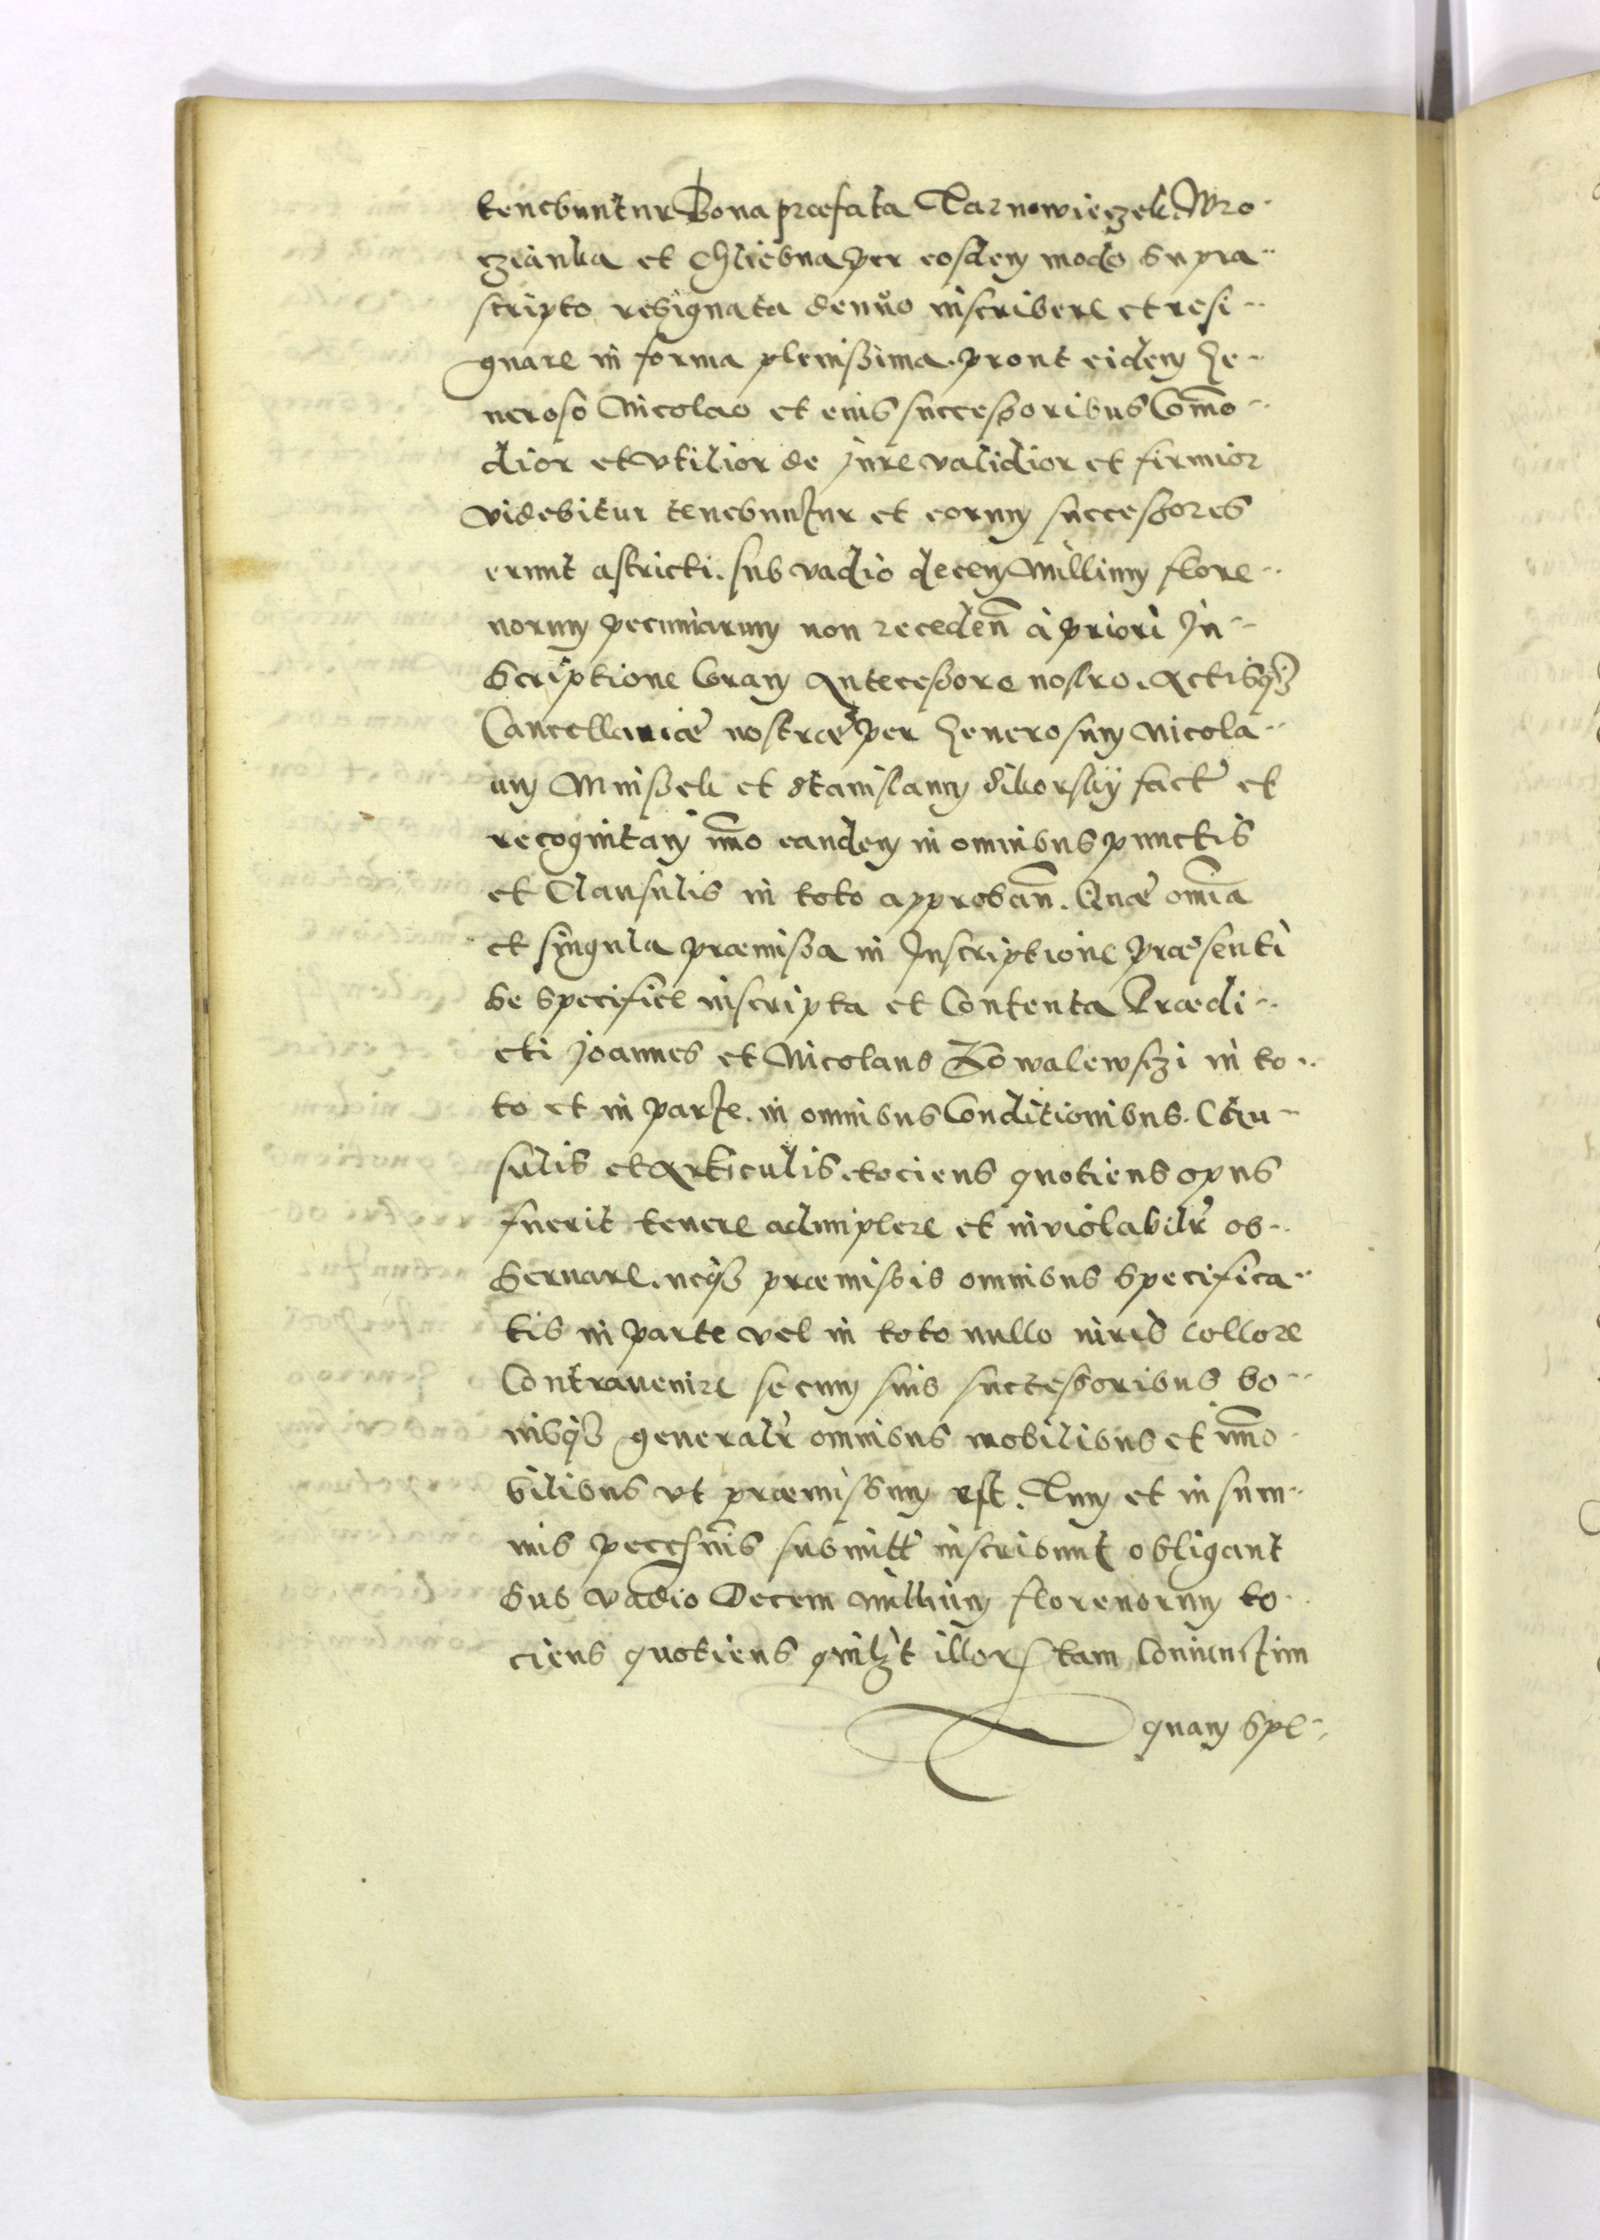 tenebuntur Bona præfata Tarnowieczek. Wro-
czianka et Chliebna per eosdem modo supra-
scripto resignata denuo inscribere et resi-
gnare in forma plenissima. prout eidem Ge-
neroso Nicolao et eius successoribus Com̄o-
dior et vtilior de Jure validior et firmior
videbitur tenebuntur et eorum successores
erunt astricti. sub vadio decem Millium flore-
norum pecuniarum non receden̄ à priori In-
scriptione Coram Antecessore nostro. Actisq̃з
Cancellariæ nostræ per Generosum Nicola-
um Mnissek et Stanislaum Sikorskÿ fact et
recognitam im̄o eandem in omnibus punctis
et Clausulis in toto approban̄. Quæ om̄ia
et singula præmissa in Inscriptione præsenti
be specifice inscripta et Contenta Prædi-
cti Joannes et Nicolaus Kowalewsczi in to-
to et in parte. in omnibus Conditionibus. Clau-
sulis et Articulis. tociens quotiens opus
fuerit tenere adimplere et inviolabilr̃ ob-
seruare. neq̃з præmissis omnibus specifica-
tis in parte vel in toto nullo iuris collore
Contrauenire se cum suis successoribus bo-
nisq̃з generalr̃ omnibus mobilibus et im̄o-
bilibus vt præmissum est. Tum et in sum-
mis submitt inscribunt obligant
sub vadio Decem Millium florenorum to-
ciens quotiens quilзt illor tam Coniunctim
quam spe-